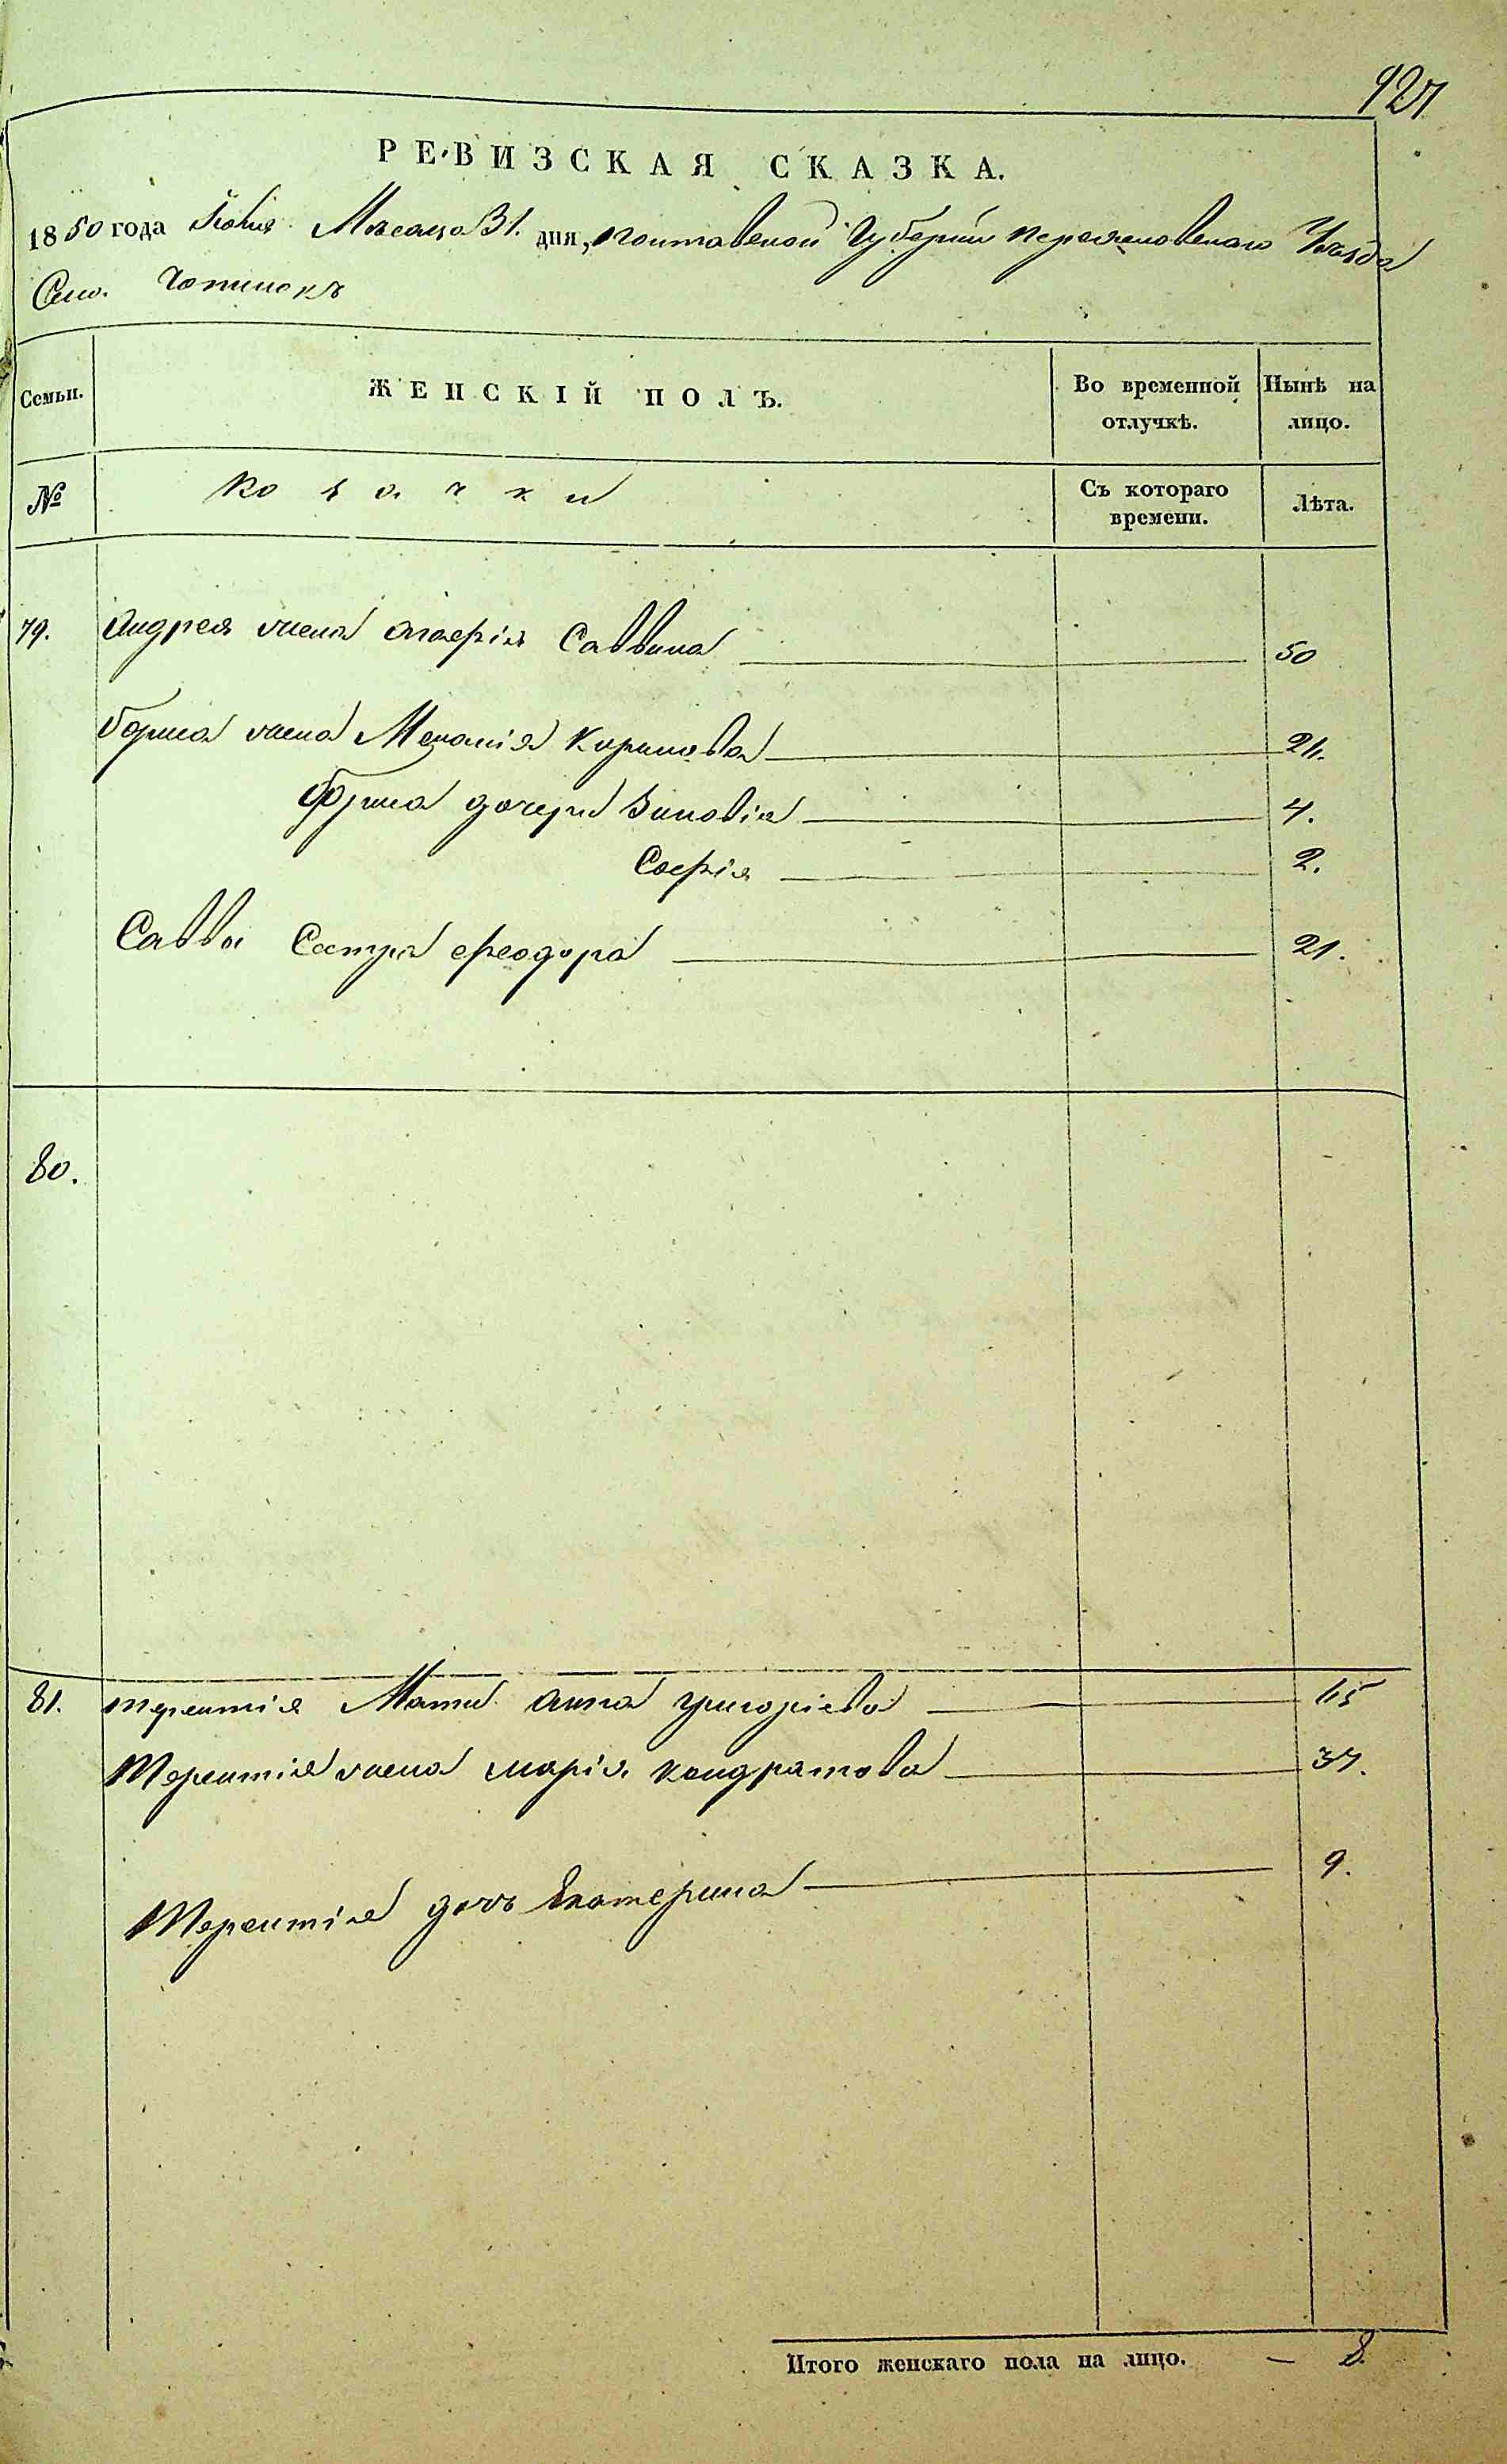 927
РЕВИЗСКАЯ СКАЗКА.
1850 года Іюня Мѣсяца 31. дня, Полтавской Губерніи Переяславскаго Уѣзда
Села Чопилокъ
Семьи. ЖЕНСКІЙ ПОЛЪ. Во временной отлучкѣ. Нынѣ на лицо.
№ Козачки Съ котораго времени. Лѣта.
79. Андрея жена Агафія Саввина 50
жена Меланія Кирилова
дочери Зиновія 4.
Софія 2.
Саввы Сестра Феодора 21.
80.
81. Терентія Мати Анна Григоріева
Терентія жена Марія Кондратова 37.
Терентія дочь Екатерина 9.
Итого женскаго пола на лицо. — 8.